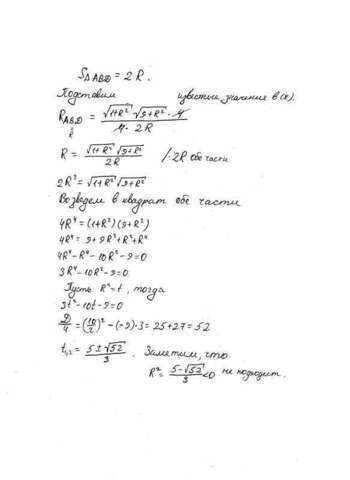 S△ABD = 2R.
Подставим известные значения в (*).
R_ABD = √(1+R²) √(9+R²) · 4 / 4 · 2R
R
R = √(1+R²) √(9+R²) / 2R /·2R обе части
2R² = √(1+R²) √(9+R²)
Возведем в квадрат обе части
4R⁴ = (1+R²)(9+R²)
4R⁴ = 9+9R²+R²+R⁴
4R⁴-R⁴-10R²-9=0
3R⁴-10R²-9=0
Пусть R²=t, тогда
3t²-10t-9=0
D/4 = (10/2)² - (-9)·3 = 25+27=52
t₁,₂ = (5±√52)/3 . Заметим, что
R² = (5-√52)/3 <0 не подходит.